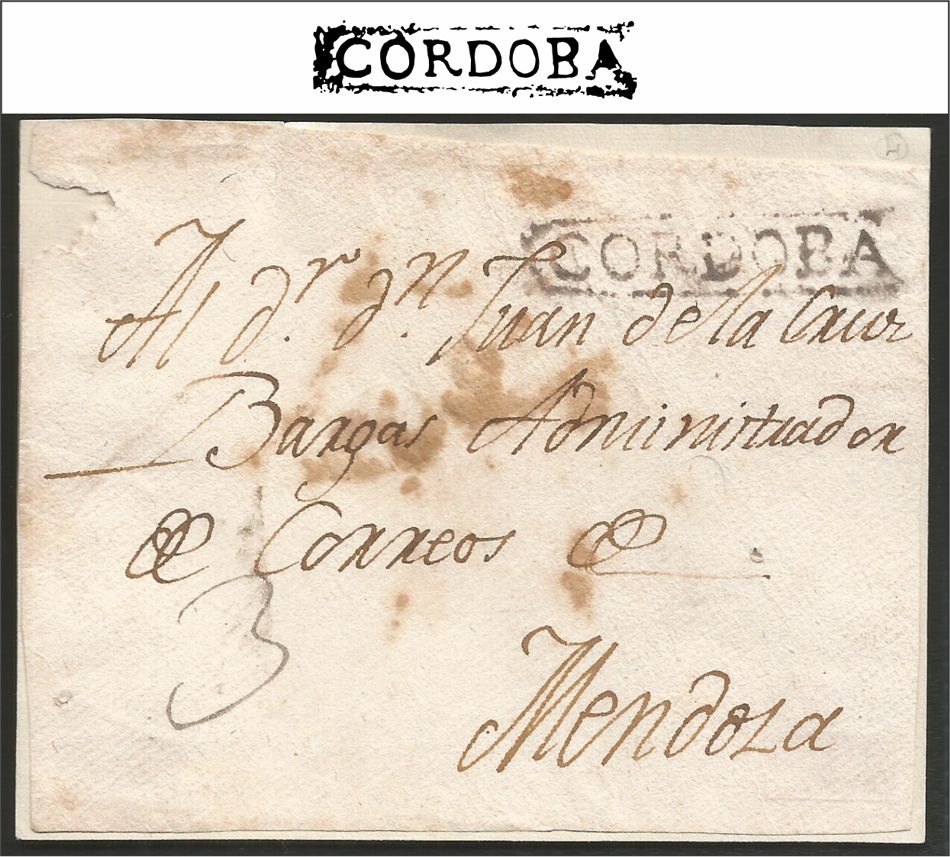 CORDOBA
CORDOBA
Al d.r d.n Juan de la Cruz
Bargas Administrador
de Correos de
3
Mendoza